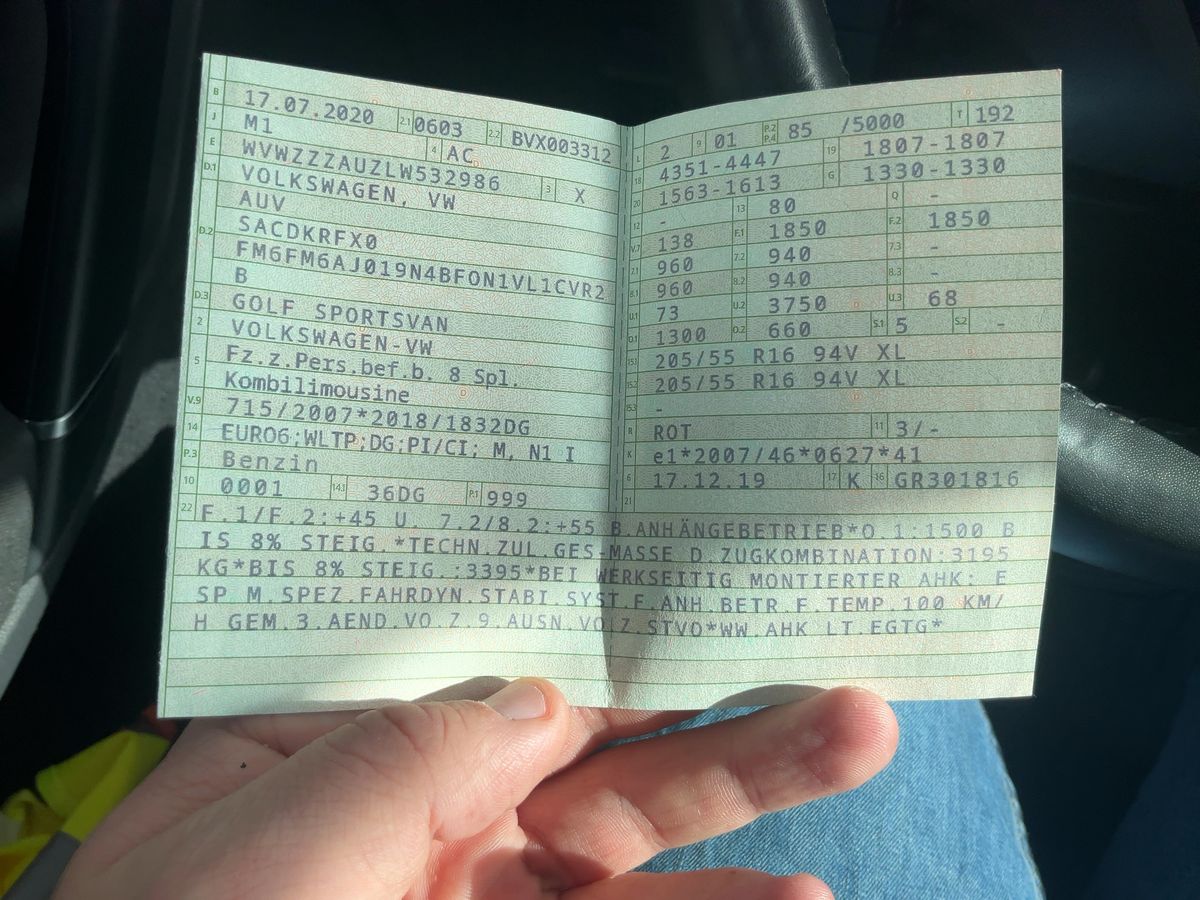 B 17.07.2020 2.1 0603 2.2 BVX003312
J M1 4 AC
E WVWZZZAUZLW532986 3 X
D.1 VOLKSWAGEN, VW
AUV
D.2 SACDKRFX0
FM6FM6AJ019N4BFON1VL1CVR2
B
D.3 GOLF SPORTSVAN
2 VOLKSWAGEN-VW
5 Fz.z.Pers.bef.b. 8 Spl.
Kombilimousine
V.9 715/2007*2018/1832DG
14 EURO6;WLTP;DG;PI/CI; M, N1 I
P.3 Benzin
10 0001 14.1 36DG P.1 999
L 2 9 01 P.2 P.4 85 /5000 T 192
18 4351-4447 19 1807-1807
20 1563-1613 G 1330-1330
12 - 13 80 Q -
V.7 138 F.1 1850 F.2 1850
7.1 960 7.2 940 7.3 -
8.1 960 8.2 940 8.3 -
U.1 73 U.2 3750 U.3 68
O.1 1300 O.2 660 S.1 5 S.2 -
15.1 205/55 R16 94V XL
15.2 205/55 R16 94V XL
15.3 -
R ROT 11 3/-
K e1*2007/46*0627*41
6 17.12.19 17 K 16 GR301816
21
22 F.1/F.2:+45 U. 7.2/8.2:+55 B.ANHÄNGEBETRIEB*O.1:1500 B
IS 8% STEIG.*TECHN.ZUL.GES-MASSE D.ZUGKOMBINATION:3195
KG*BIS 8% STEIG.:3395*BEI WERKSEITIG MONTIERTER AHK: E
SP M.SPEZ.FAHRDYN.STABI.SYST.F.ANH.BETR.F.TEMP.100 KM/
H GEM.3.AEND.VO.Z.9.AUSN.VO.Z.STVO*WW.AHK LT.EGTG*